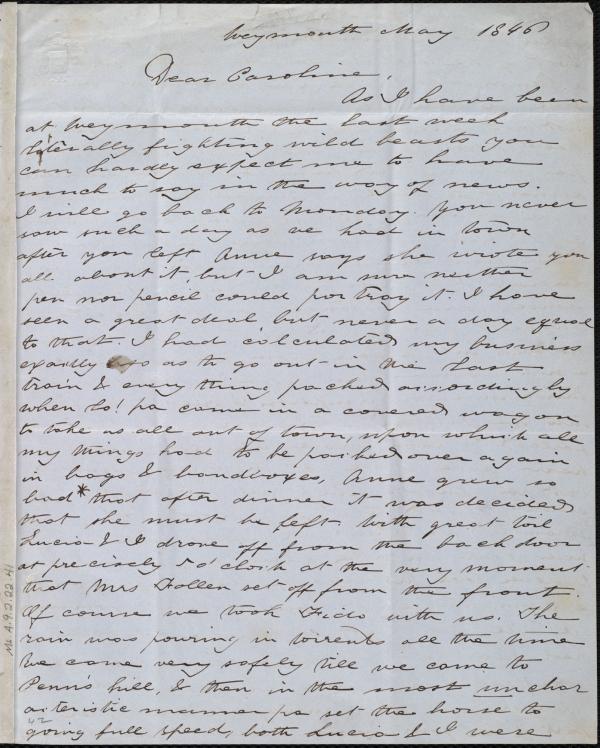 Weymouth May 1846
Dear Caroline,
As I have been
at Weymouth the last week
literally fighting wild beasts you
can hardly expect me to have
much to say in the way of news.
I will go back to Monday. You never
saw such a day as we had in town
after you left Anne says she wrote you
all about it, but I am sure neither
pen nor pencil could portray it. I have
seen a great deal but never a day equal
to that. I had calculated my business
exactly so as to go out in the last
train & every thing packed accordingly
when lo! pa came in a covered wagon
to take us all out of town, upon which all
my things had to be packed over again
in bags & bandboxes, Anne grew so
bad * that after dinner it was decided
that she must be left. With great toil
Lucia & I drove off from the back door
at precisely 5 o'clock at the very moment
that Mrs Follen set off from the front.
Of course we took Fido with us. The
rain was pouring in torrents all the time
We came very safely till we came to
Penn's hill, & then in the most unchar
acteristic manner pa set the horse to
going full speed, both Lucia & I were
Ms A.9.2.22.41